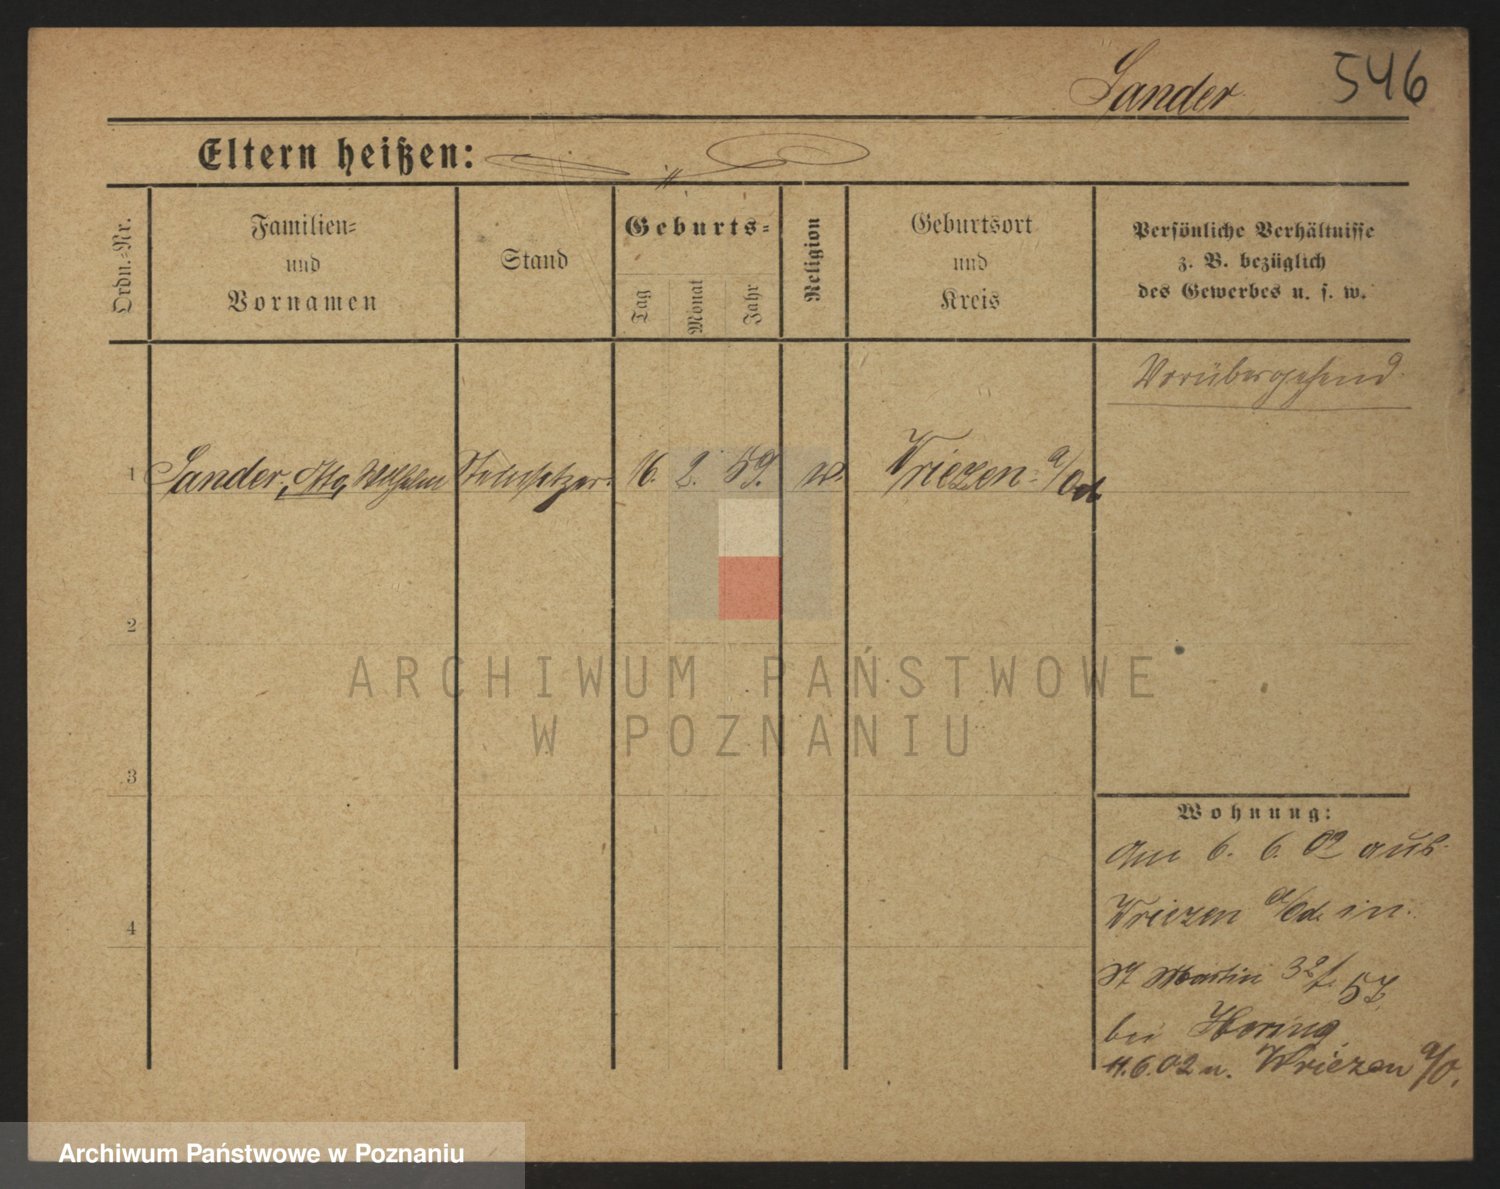 Sander
546
Eltern heißen:
Ordn.-Nr.
Familien-
und
Vornamen
Stand
Geburts-
Tag
Monat
Jahr
Religion
Geburtsort
und
Kreis
Persönliche Verhältnisse
z. B. bezüglich
des Gewerbes u. s. w.
Vorübergehend
1 Sander, Otto, Wilhelm Steinsetzer. 16. 2. 59. Wriezen a/Od.
2
3
4
Wohnung:
Am 6. 6. 02 aus
Wriezen a/Od. in
St Martin 32/ 57
bei Horing
11.6.02 n. Wriezen a/O.
ARCHIWUM PAŃSTWOWE
W POZNANIU
Archiwum Państwowe w Poznaniu